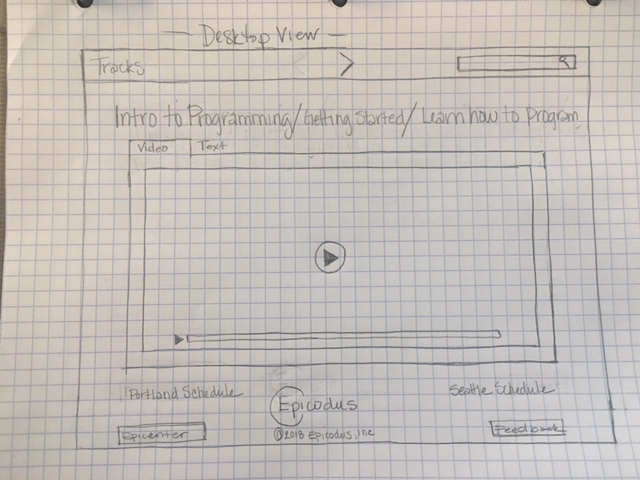 — Desktop View —
Tracks
Intro to Programming/Getting Started/Learn how to Program
Video Text
Portland Schedule Epicodus Seattle Schedule
Epicenter ©2018 Epicodus, Inc Feedback